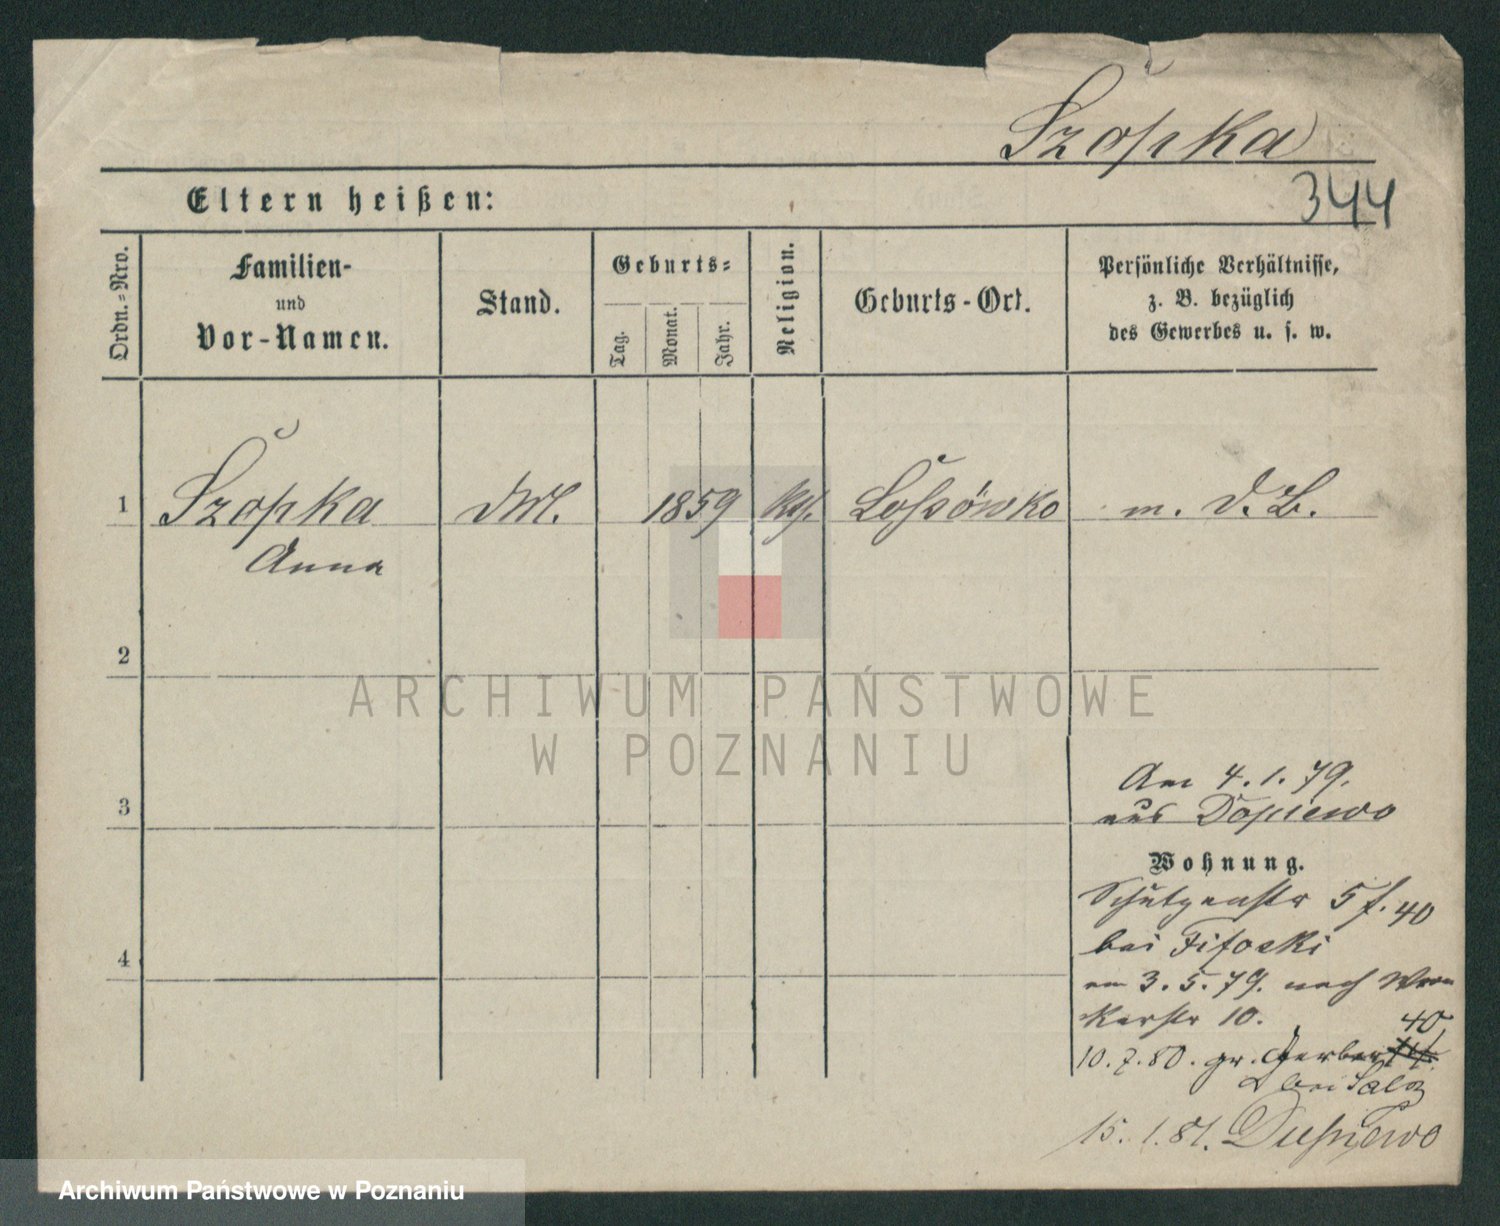 Szopka
344
Eltern heißen:
Ordn.=Nro.
Familien-
und
Vor-Namen.
Stand.
Geburts=
Tag.
Monat.
Jahr.
Religion.
Geburts-Ort.
Persönliche Verhältnisse,
z. B. bezüglich
des Gewerbes u. s. w.
1 Szopka 1859 Kth. Lossówko m. D. B.
Anna
2
ARCHIWUM PAŃSTWOWE
W POZNANIU
Am 4.1.79.
3 aus Dopiewo
Wohnung.
Schützenstr 5 f. 40
bei
4
am 3.5.79. nach
10. 40
10.7.80. gr. Gerber
bei
15.1.81.
Archiwum Państwowe w Poznaniu